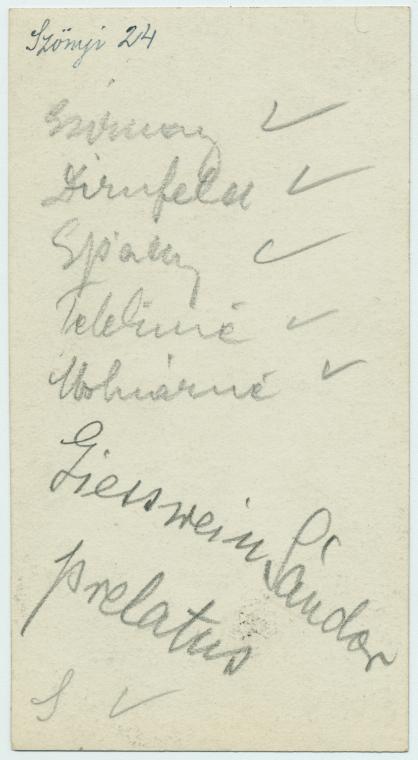 Szőnyi 24
Dirnfeld ✓
✓
✓
Telekiné ✓
Molnárné ✓
Giesswein Sándor
prelatus
S ✓